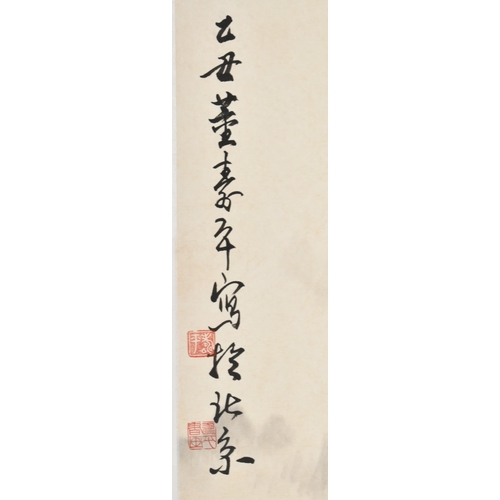 乙丑董寿平寫於北京